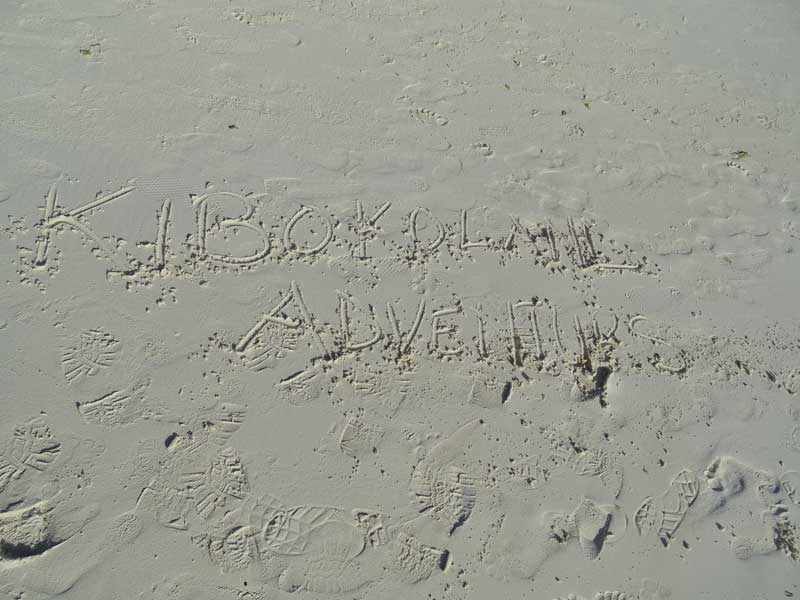 KIBOKOLAND
ADVENTURS